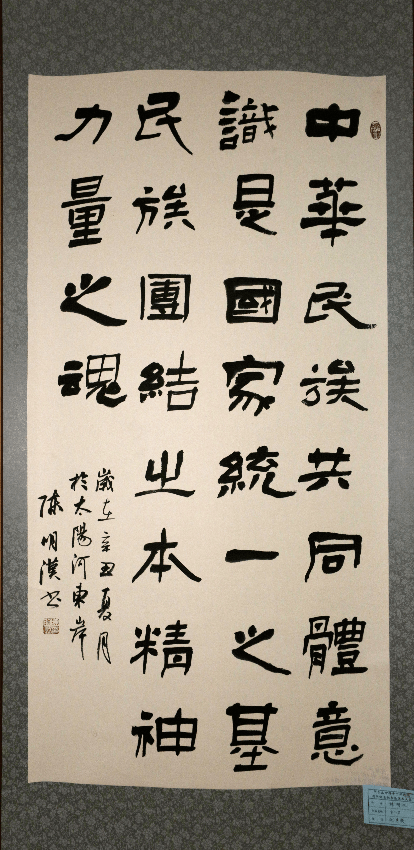 中華民族共同體意
識是國家統一之基
民族團結之本精神
力量之魂
歲在辛丑夏月
於太陽河東岸
陳明漢书